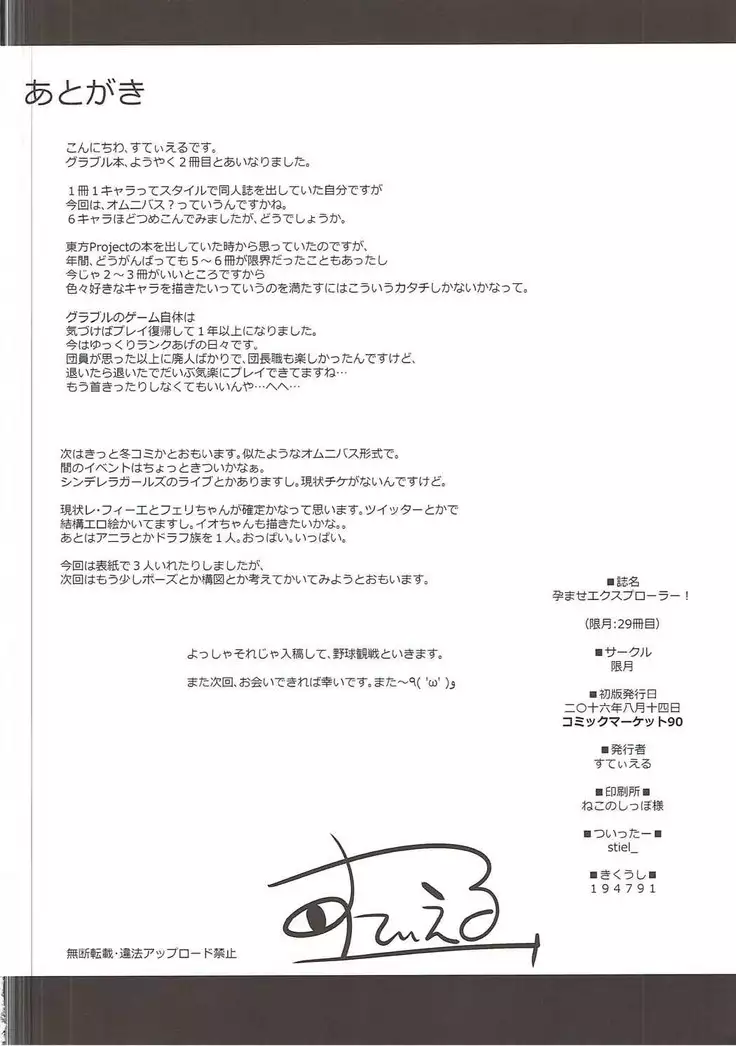 あとがき
こんにちわ、すてぃえるです。
グラブル本、ようやく２冊目とあいなりました。
１冊１キャラってスタイルで同人誌を出していた自分ですが
今回は、オムニバス？っていうんですかね。
６キャラほどつめこんでみましたが、どうでしょうか。
東方Projectの本を出していた時から思っていたのですが、
年間、どうがんばっても５～６冊が限界だったこともあったし
今じゃ２～３冊がいいところですから
色々好きなキャラを描きたいっていうのを満たすにはこういうカタチしかないかなって。
グラブルのゲーム自体は
気づけばプレイ復帰して１年以上になりました。
今はゆっくりランクあげの日々です。
団員が思った以上に廃人ばかりで、団長職も楽しかったんですけど、
退いたら退いたでだいぶ気楽にプレイできてますね…
もう首きったりしなくてもいいんや…へへ…
次はきっと冬コミかとおもいます。似たようなオムニバス形式で。
間のイベントはちょっときついかなぁ。
シンデレラガールズのライブとかありますし。現状チケがないんですけど。
現状レ・フィーエとフェリちゃんが確定かなって思います。ツイッターとかで
結構エロ絵かいてますし。イオちゃんも描きたいかな。。
あとはアニラとかドラフ族を１人。おっぱい。いっぱい。
今回は表紙で３人いれたりしましたが、
次回はもう少しポーズとか構図とか考えてかいてみようとおもいます。
よっしゃそれじゃ入稿して、野球観戦といきます。
また次回、お会いできれば幸いです。また～٩( 'ω' )و
■誌名
孕ませエクスプローラー！
（限月:29冊目）
■サークル
限月
■初版発行日
二〇十六年八月十四日
コミックマーケット90
■発行者
すてぃえる
■印刷所■
ねこのしっぽ様
■ついったー■
stiel_
■きくうし■
１９４７９１
すてぃえる
無断転載・違法アップロード禁止